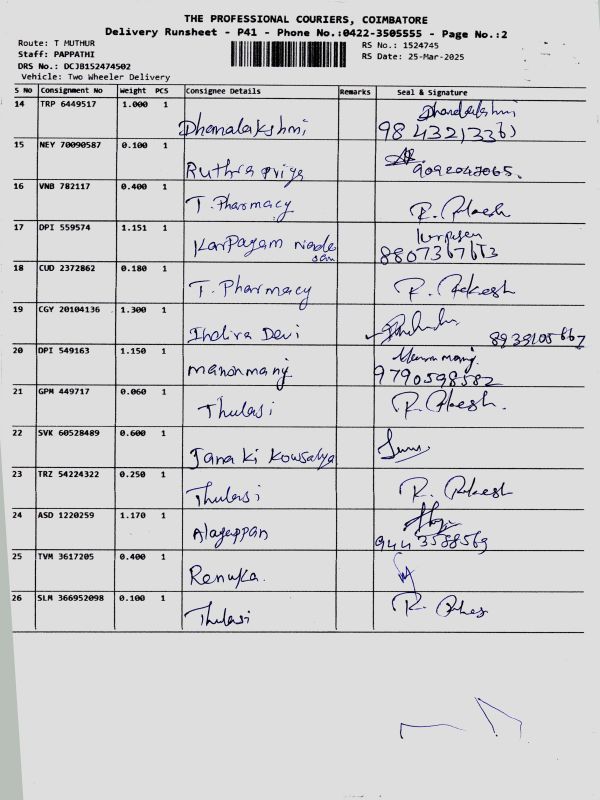 THE PROFESSIONAL COURIERS, COIMBATORE
Delivery Runsheet - P41 - Phone No.:0422-3505555 - Page No.:2
Route: T MUTHUR
Staff: PAPPATHI
DRS No.: DCJB152474502
Vehicle: Two Wheeler Delivery
RS No.: 1524745
RS Date: 25-Mar-2025
S No Consignment No Weight PCS Consignee Details Remarks Seal & Signature
14 TRP 6449517 1.000 1 Dhanalakshmi Dhanalakshmi
9843213361
15 NEY 70090587 0.100 1 Ruthra priya 9092047065.
16 VNB 782117 0.400 1 T. Pharmacy R.
17 DPI 559574 1.151 1 Karpagam
8807367673
18 CUD 2372862 0.180 1 T. Pharmacy R.
19 CGY 20104136 1.300 1 Indira Devi 8939105667
20 DPI 549163 1.150 1 manonmany
9790598582
21 GPM 449717 0.060 1 Thulasi R.
22 SVK 60528489 0.600 1 Jana ki Kowsalya
23 TRZ 54224322 0.250 1 Thulasi R.
24 ASD 1220259 1.170 1 Alageppan
9443588569
25 TVM 3617205 0.400 1 Renuka.
26 SLM 366952098 0.100 1 Thulasi R.